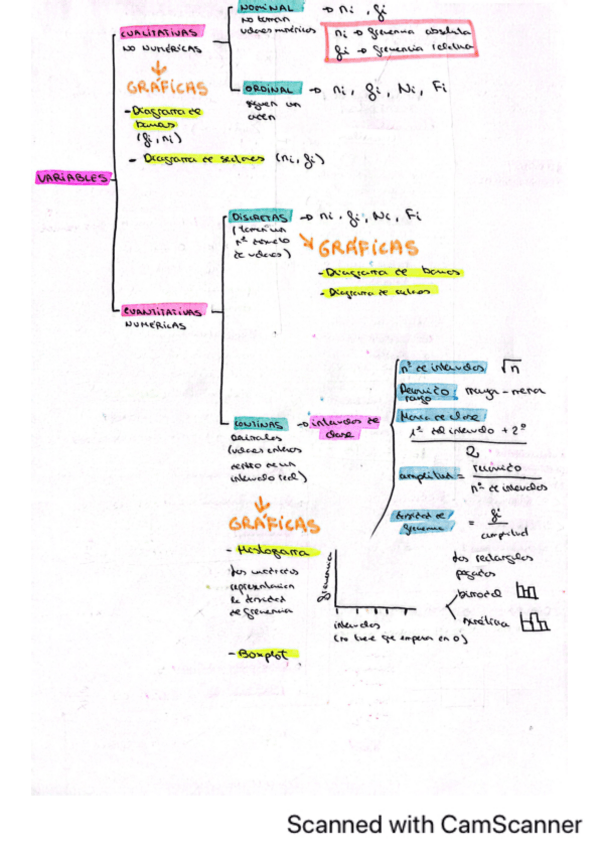 VARIABLES
CUALITATIVAS
NO NUMÉRICAS
GRÁFICAS
- Diagrama de
barras
(fi, ni)
- Diagrama de sectores (ni, fi)
NOMINAL → ni, fi
no toman
valores numéricos
ni → frecuencia absoluta
fi → frecuencia relativa
ORDINAL → ni, fi, Ni, Fi
siguen un
orden
CUANTITATIVAS
NUMÉRICAS
DISCRETAS → ni, fi, Ni, Fi
(toman un
nº
de valores)
GRÁFICAS
- Diagrama de barras
- Diagrama de sectores
CONTINAS → intervalos de
clase
decimales
(valores enteros
dentro de un
intervalo real)
nº de intervalos √n
Recorrido
rango : mayor - menor
Marca de clase:
1º del intervalo + 2º
2
amplitud = recorrido
nº de intervalos
densidad de
frecuencia = fi
amplitud
GRÁFICAS
- Histograma
representan
la densidad
de frecuencia
frecuencia
intervalos
(no tiene que empezar en 0)
los rectangulos
pegados
bimodal
- Boxplot
Scanned with CamScanner